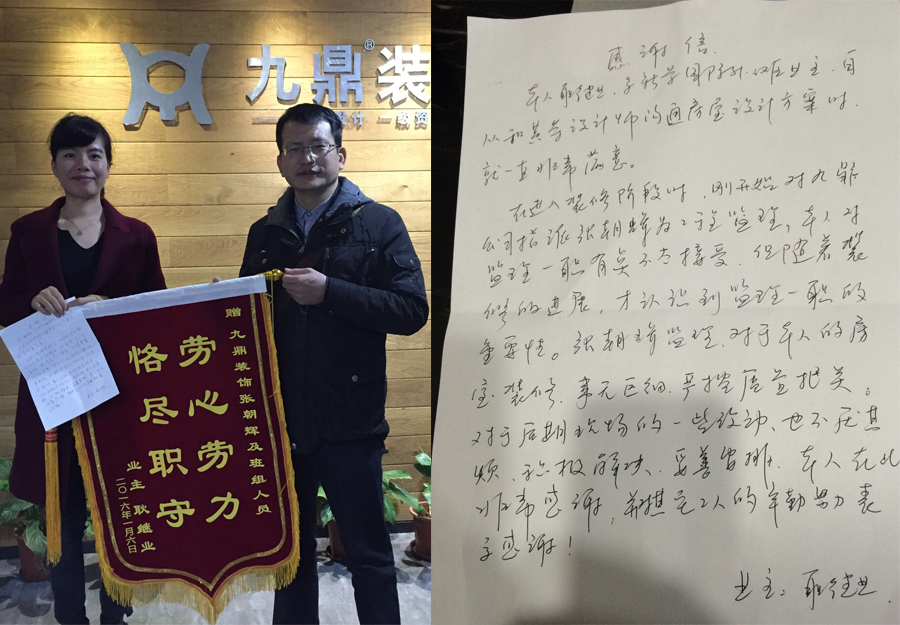 九鼎®装
设计 一级资
赠 九鼎装饰张朝辉及班组人员
劳心劳力
恪尽职守
业主 耿继业
二〇一六年一月六日
感谢信
从和黄芩设计师沟通房屋设计方案时，
就一直非常满意。
在进入装修阶段时，刚开始对九鼎
公司指派张朝辉为工地监理，本人对
监理一职有点不太接受，但随着装
修的进展，才认识到监理一职的
重要性。张朝辉监理，对于本人的房
室装修，事无巨细，严控质量把关。
对于后期现场的一些改动，也不厌其
烦，积极解决，妥善安排，本人在此
非常感谢，并对工人的辛勤努力表
示感谢！
业主：耿继业